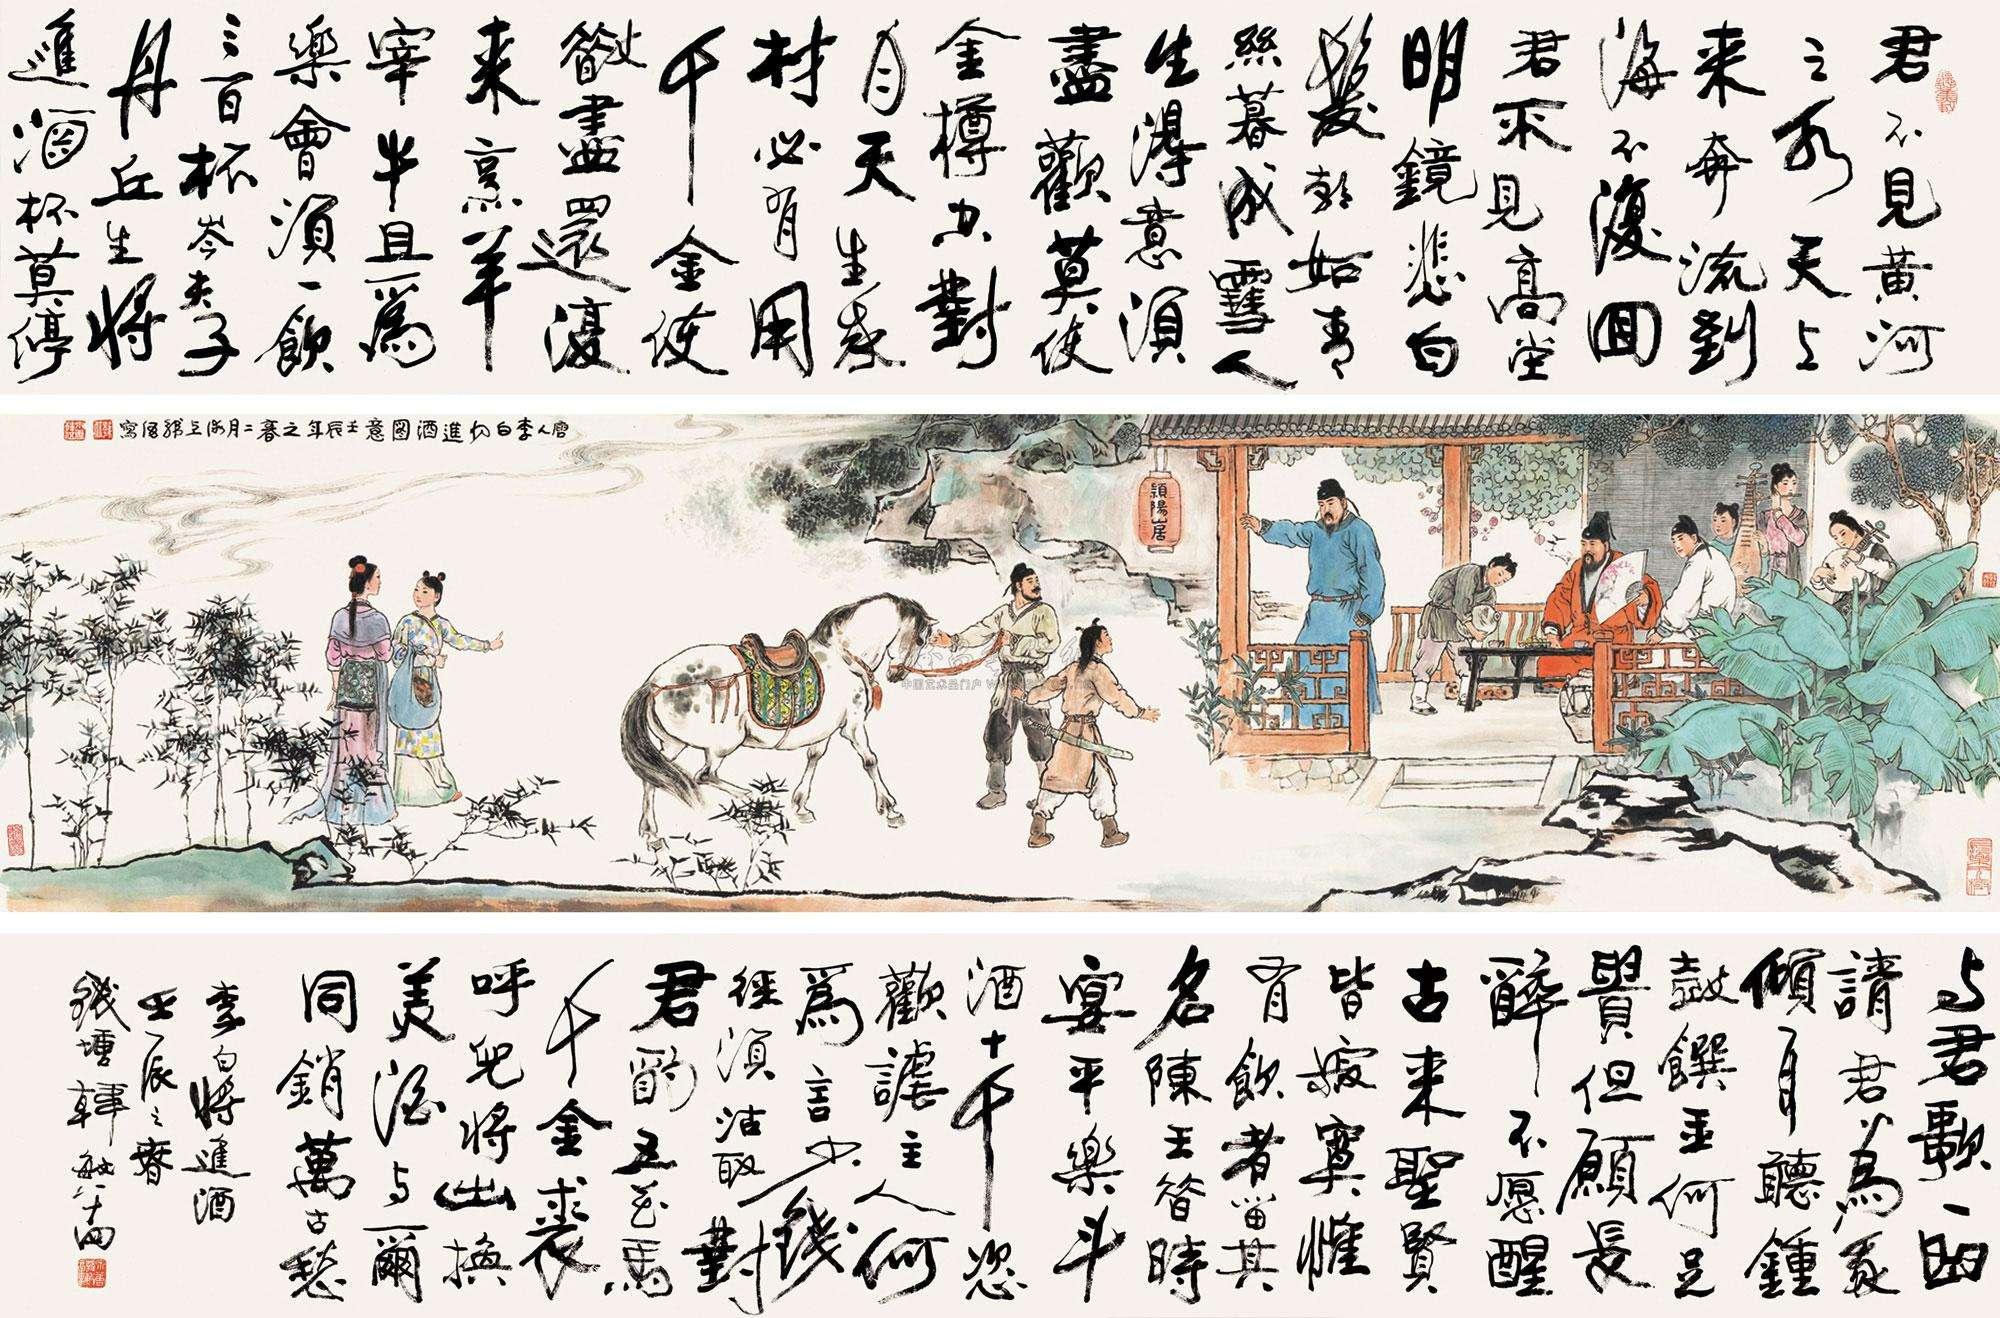 君不見黄河
之水天上
来奔流到
海不復回
君不見高堂
明鏡悲白
髮朝如青
絲暮成雪人
生得意須
盡歡莫使
金樽空對
月天生我
材必有用
千金使
散盡還復
来烹羊
宰牛且爲
樂會須一飲
三百杯岑夫子
丹丘生將
進酒杯莫停
唐人李白将進酒圖意壬辰年之春二月海上韓伍寫
潁陽山居
中国艺术品门户
与君歌一曲
請君为我
傾耳聽鍾
鼓饌玉何足
貴但願長
醉不愿醒
古来聖賢
皆寂寞惟
有飲者留其
名陳王昔時
宴平樂斗
酒十千恣
歡謔主人何
爲言少錢
徑須沽取對
君酌五花馬
千金裘
呼兒將出換
美酒与爾
同銷萬古愁
李白將進酒
壬辰之春
錢塘韓敏八十四